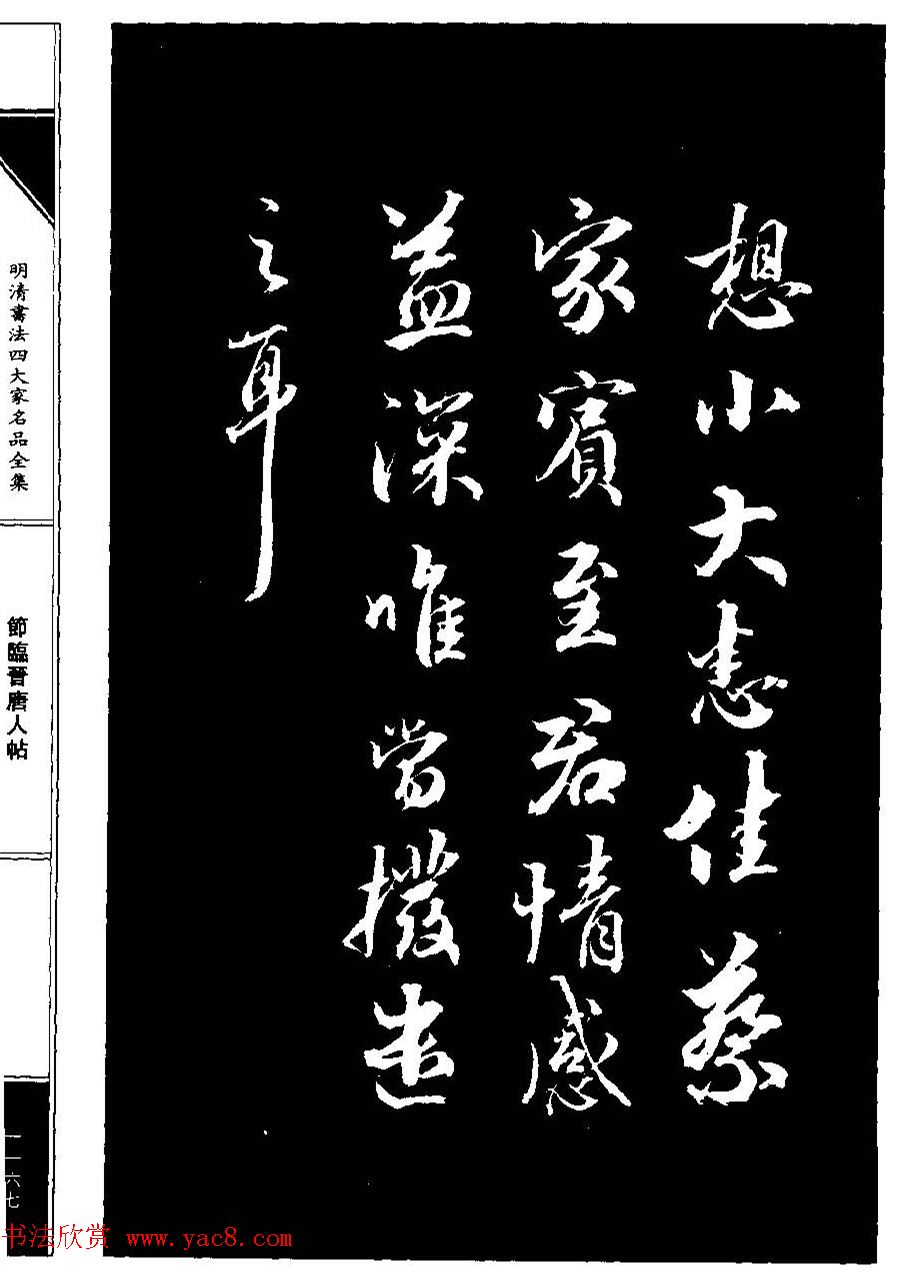 想小大悉佳蔡
家賓至君情感
益深唯當撥遣
之耳
明清書法四大家名品全集
節臨晉唐人帖
一一六七
书法欣赏 www.yac8.com